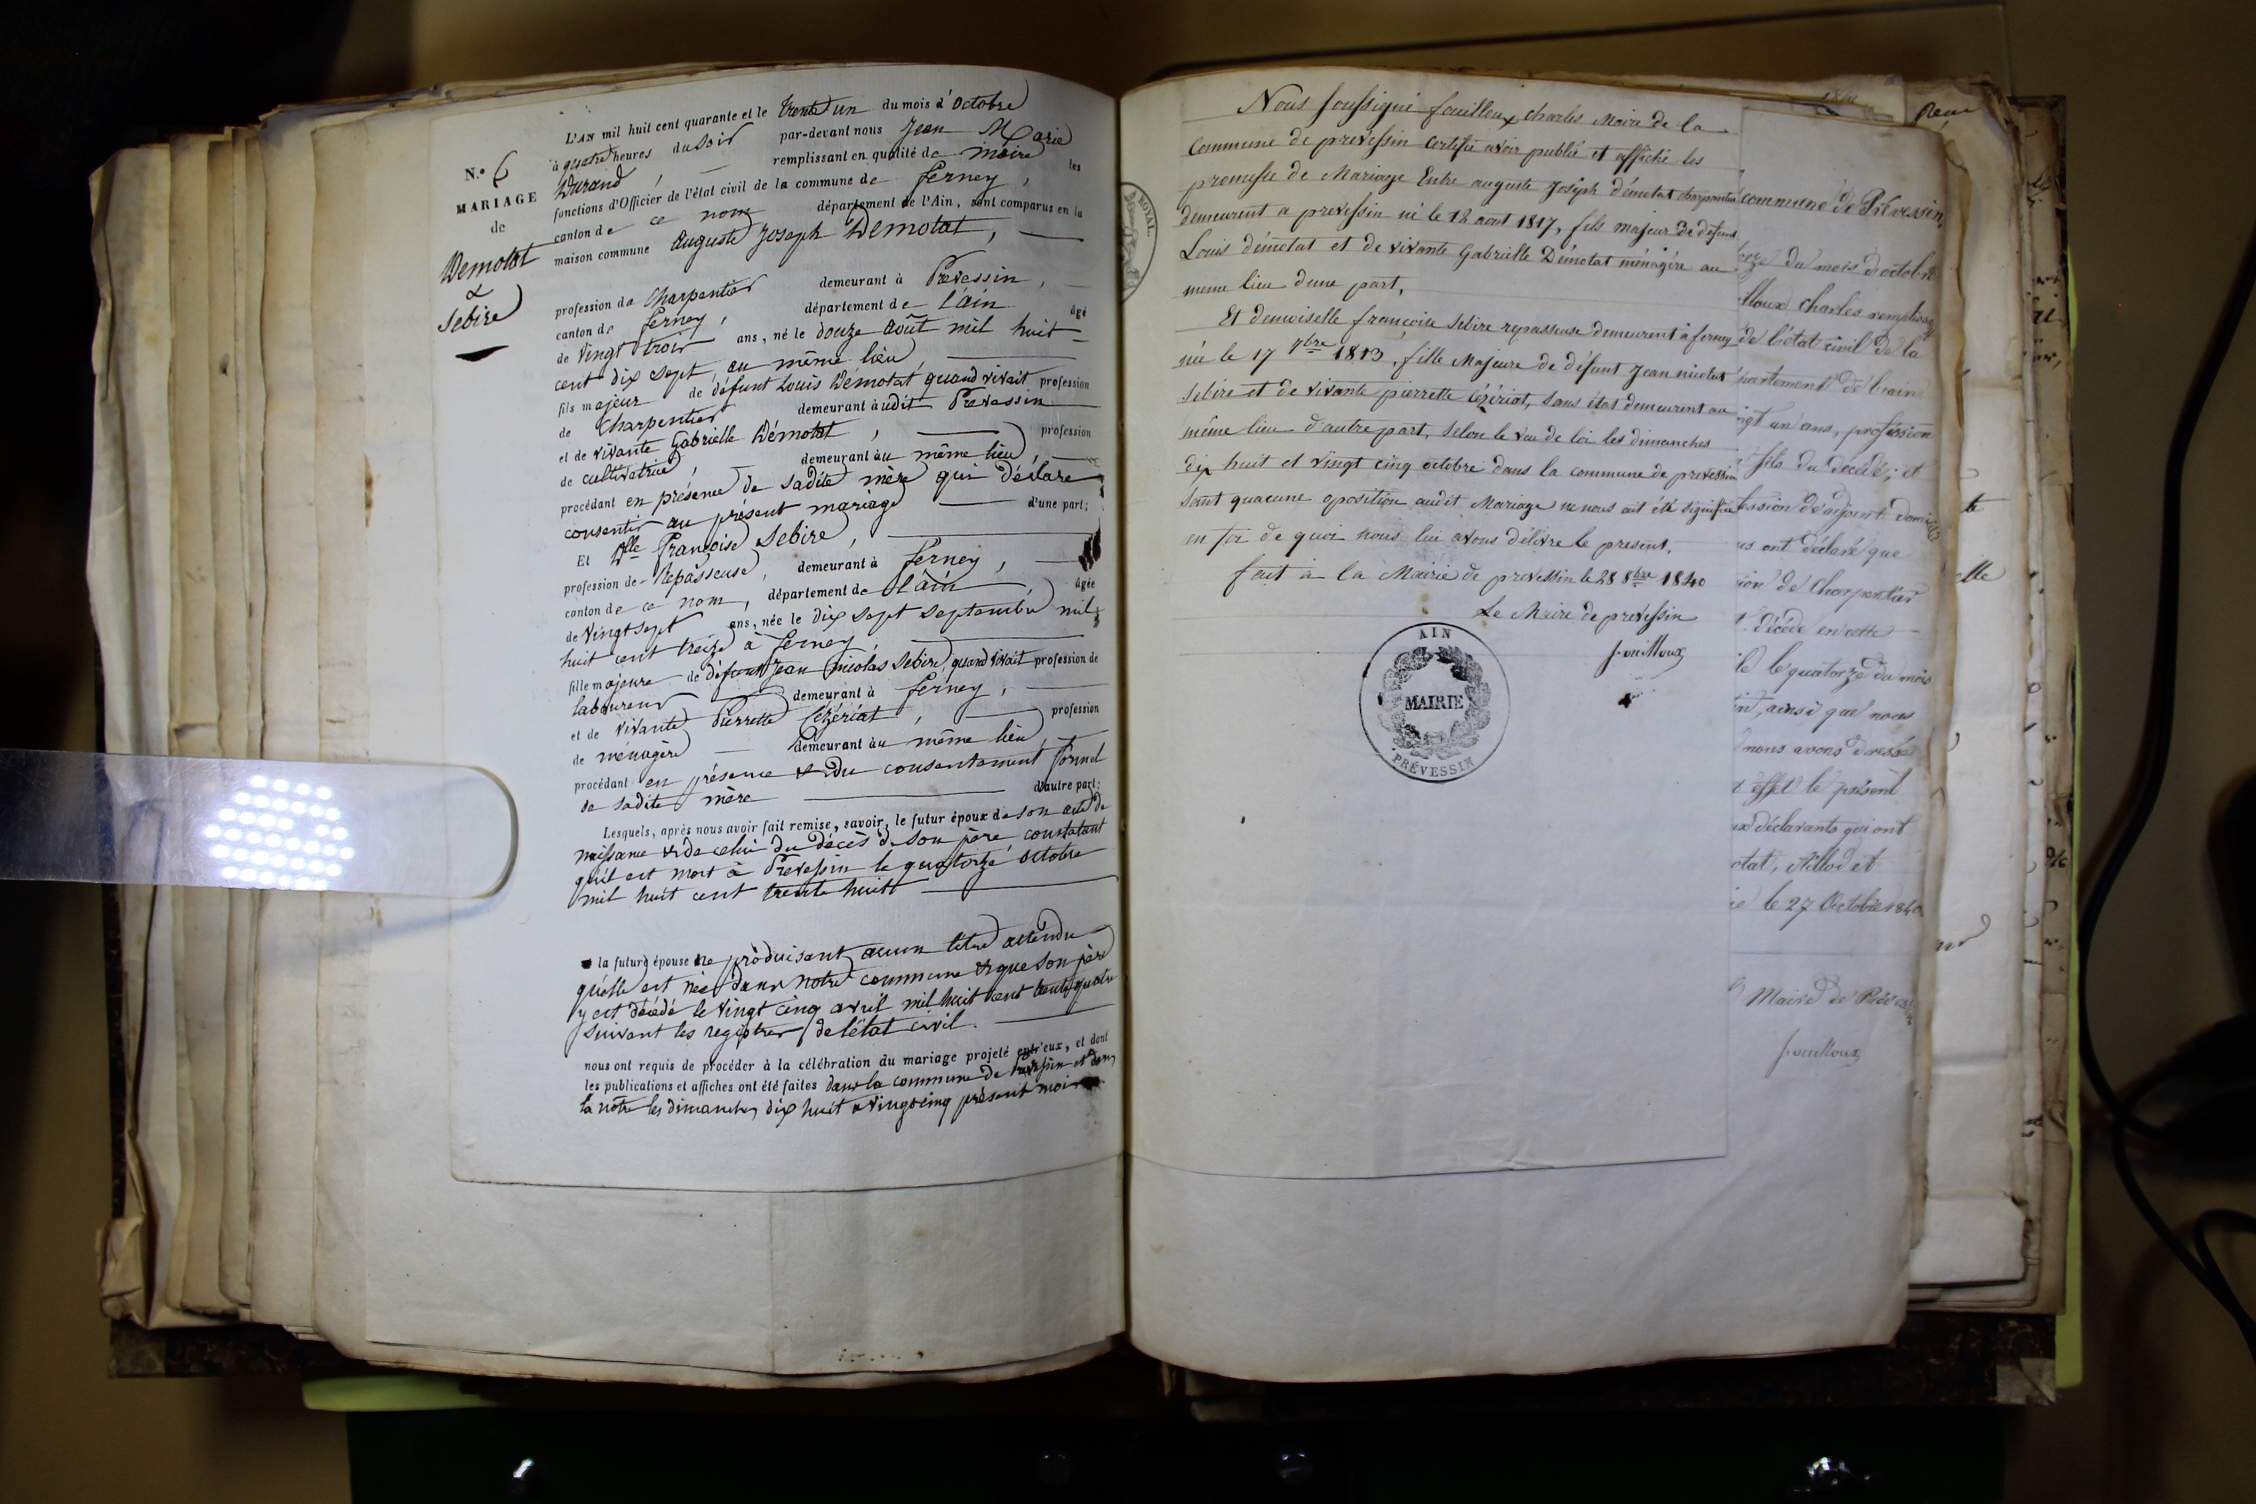 L'AN mil huit cent quarante et le trente un du mois d'octobre
à quatre heures du soir par-devant nous Jean Marie
Durand, remplissant en qualité de maire les
fonctions d'Officier de l'état civil de la commune de ferney,
canton de ce nom département de l'Ain, sont comparus en la
maison commune Auguste Joseph Demotat,
N.º 6
MARIAGE
de
Demotat
&
Sebire
profession de Charpentier demeurant à Prevessin,
canton de ferney, département de l'ain âgé
de vingt trois ans, né le douze août mil huit
cent dix sept, au même lieu,
fils majeur de défunt Louis Démotat quand vivait profession
de Charpentier demeurant audit Prevessin
et de vivante Gabrielle Démotat, profession
de cultivatrice, demeurant au même lieu,
procédant en présence de sadite mère qui déclare
consentir au présent mariage d'une part;
Et Dlle Françoise Sebire,
profession de Repasseuse, demeurant à ferney,
canton de ce nom, département de l'ain âgée
de vingt sept ans, née le dix sept septembre mil
huit cent treize à ferney,
fille majeure de défunt Jean Nicolas Sebire, quand vivait profession de
laboureur demeurant à ferney,
et de vivante Pierrette Cézériat, profession
de ménagère demeurant au même lieu,
procédant en présence & du consentement formel
de sadite mère d'autre part;
Lesquels, après nous avoir fait remise, savoir, le futur époux de son acte de
naissance & de celui du décès de son père constatant
qu'il est mort à Prevessin le quatorze octobre
mil huit cent trente huit
la future épouse ne produisant aucun titre attendu
qu'elle est née dans notre commune & que son père
y est décédé le vingt cinq avril mil huit cent trente quatre
suivant les registres de l'état civil.
nous ont requis de procéder à la célébration du mariage projeté entr'eux, et dont
les publications et affiches ont été faites dans la commune de Prevessin et dans
la nôtre les dimanches dix huit & vingt cinq présent mois
ROYAL
Nous soussigné fouilloux charles Maire de la
Commune de prevessin certifie avoir publié et affiché les
promesse de Mariage Entre auguste Joseph démotat charpentier
demeurent a prevessin né le 12 aout 1817, fils majeur de defunt
Louis démotat et de vivante Gabrielle Démotat ménagère au
meme lieu d'une part,
Et demoiselle françoise Sebire repasseuse demeurent à ferney
née le 17 7bre 1813, fille Majeure de défunt Jean nicolas
Sebire et de vivante pierrette Cézériat, sans état demeurent au
même lieu d'autre part, selon le veu de loi les dimanches
dix huit et vingt cinq octobre dans la commune de prevessin
sant quacune oposition audit Mariage ne nous ait été signifiée
en foi de quoi nous lui avons délivre le present.
fait à la Mairie de prevessin le 28 8bre 1840
Le Maire de prevessin
fouilloux
AIN
MAIRIE
PRÉVESSIN
commune de Prévessin,
du mois d'octobre
charles
de l'état civil de la
de l'ain
ans, profession
fils du décédé; et
d'adjoint
ont déclaré que
de Charpentier
décédé en cette
le quatorze du mois
ainsi que nous
nous avons dressé
effet le présent
déclarants qui ont
et
le 27 Octobre 1840
Maire de Prévessin
fouilloux